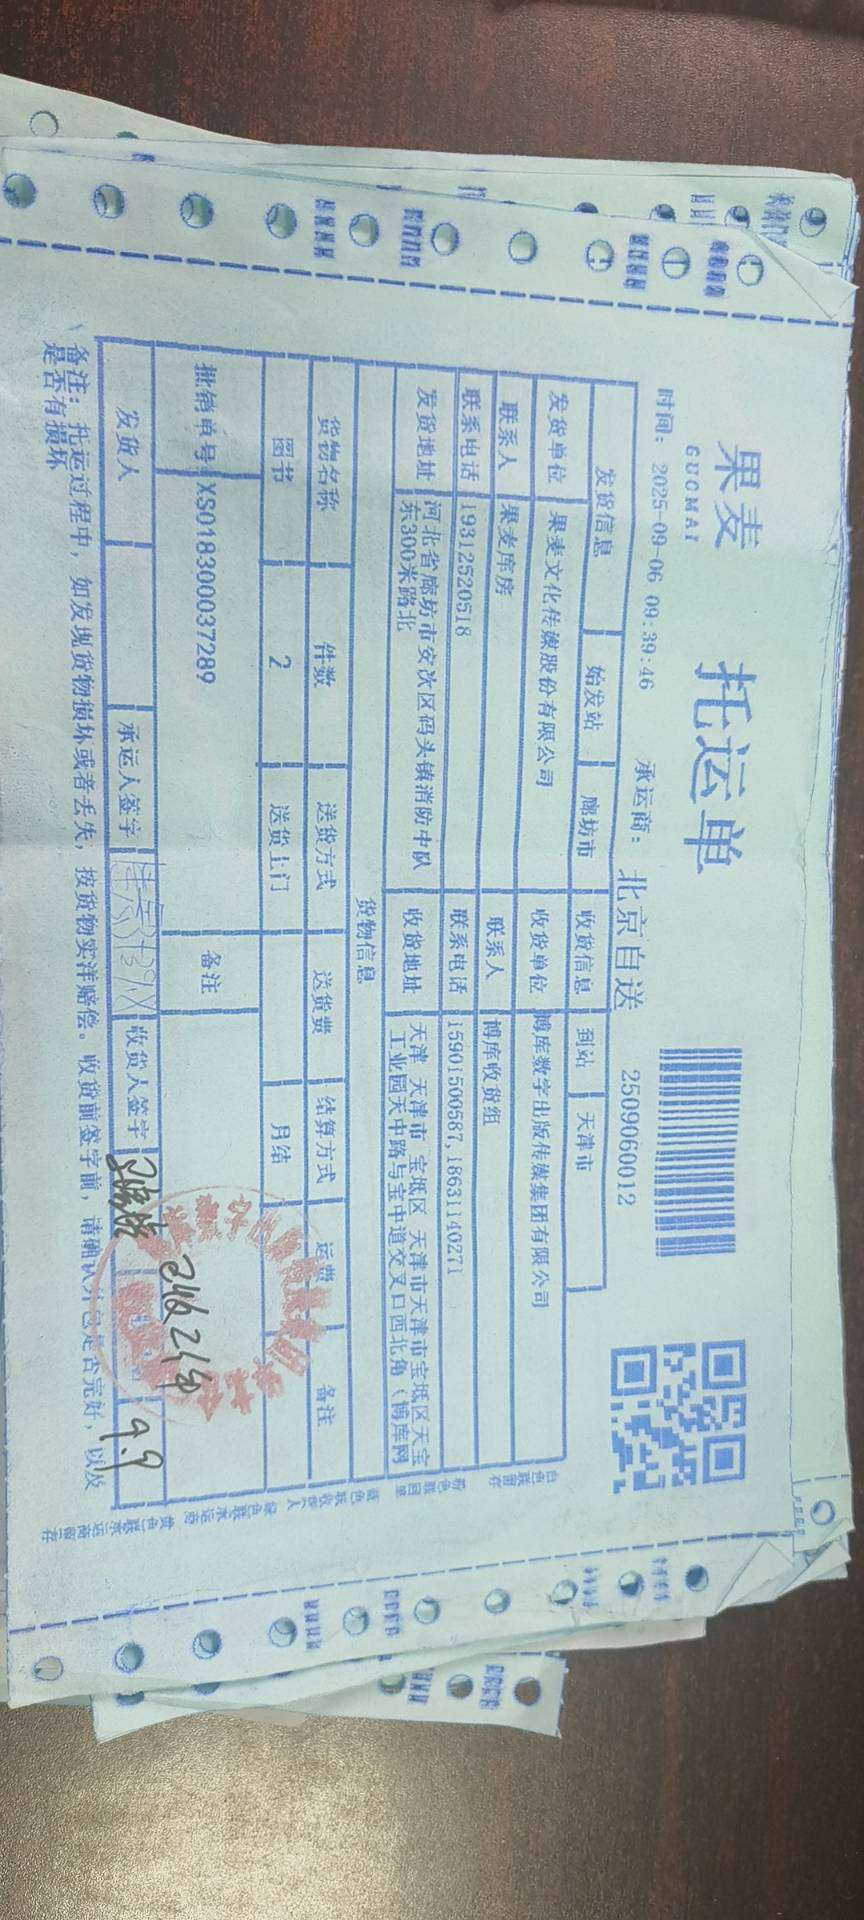 果麦
GUOMAI
托运单
时间: 2025-09-06 09:39:46 承运商: 北京自送 2509060012
发货信息 始发站 廊坊市 收货信息 到站 天津市
发货单位 果麦文化传媒股份有限公司 收货单位 博库数字出版传媒集团有限公司
联系人 果麦库房 联系人 博库收货组
联系电话 19312520518 联系电话 15901500587,18631140271
发货地址 河北省廊坊市安次区码头镇消防中队东300米路北 收货地址 天津 天津市 宝坻区 天津市天津市宝坻区天宝工业园天中路与宝中道交叉口西北角(博库网
货物信息
货物名称 件数 送货方式 送货费 结算方式 运费 备注
图书 2 送货上门 月结
批销单号 XS018300037289 备注
已收2件
发货人 承运人签字 收货人签字 9.9
备注: 托运过程中, 如发现货物损坏或者丢失, 按货物实洋赔偿。收货前签字前, 请确认外包是否完好, 以及
是否有损坏
白色联留存
粉色联回单
蓝色联收货人
绿色联承运商
黄色联承运商留存